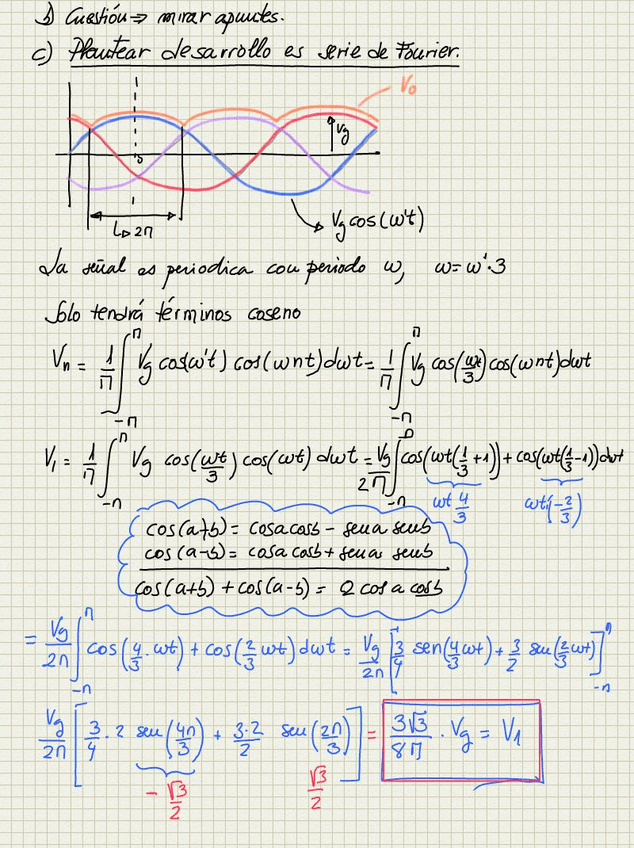 b) Cuestión ⇒ mirar apuntes.
c) Plantear desarrollo es serie de Fourier.
V₀
Vg
0
Vg cos(ω't)
↳ 2π
La señal es periodica con periodo ω, ω = ω'·3
Solo tendrá términos coseno
Vn = 1/π ∫_{-π}^{π} Vg cos(ω't) cos(ωnt) dωt = 1/π ∫_{-π}^{π} Vg cos(ωt/3) cos(ωnt) dωt
V₁ = 1/π ∫_{-π}^{π} Vg cos(ωt/3) cos(ωt) dωt = Vg/2π ∫_{-π}^{π} cos(ωt(1/3+1)) + cos(ωt(1/3-1)) dωt
ωt 4/3 ωt(-2/3)
cos(a+b) = cosa cosb - sena senb
cos(a-b) = cosa cosb + sena senb
cos(a+b) + cos(a-b) = 2 cos a cosb
= Vg/2π ∫_{-π}^{π} cos(4/3·ωt) + cos(2/3 ωt) dωt = Vg/2π [3/4 sen(4/3 ωt) + 3/2 sen(2/3 ωt)]_{-π}^{π}
Vg/2π [3/4 · 2 sen(4π/3) + 3·2/2 sen(2π/3)] = 3√3/8π · Vg = V₁
-√3/2 √3/2